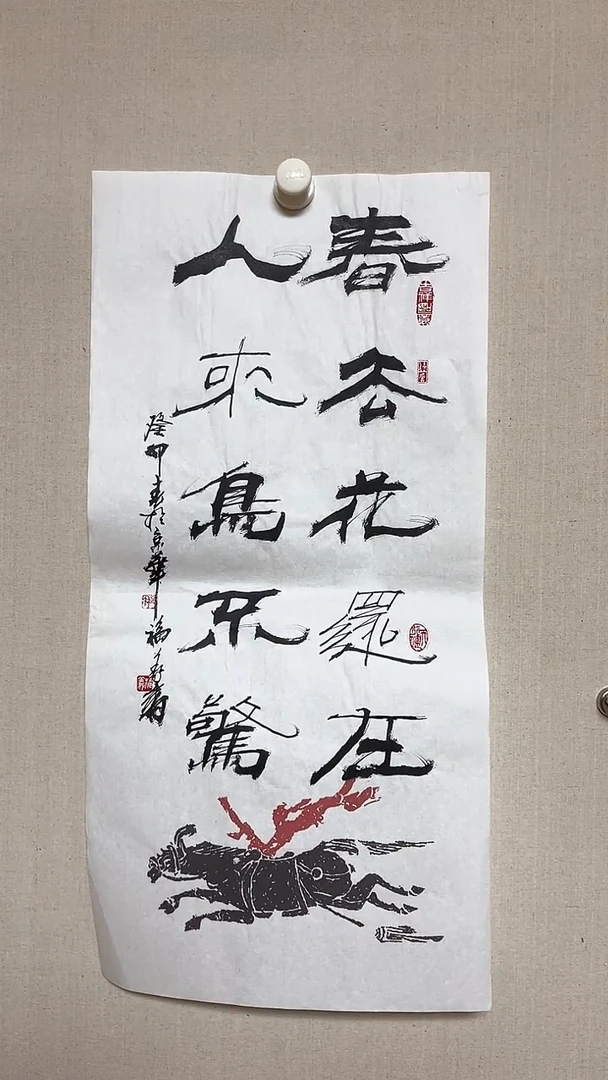 春去花還在
人來鳥不驚
癸卯春於京華